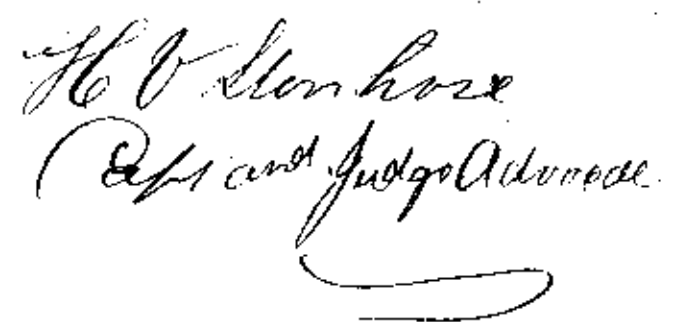 H V Stonhose
Capt and Judge Advocate